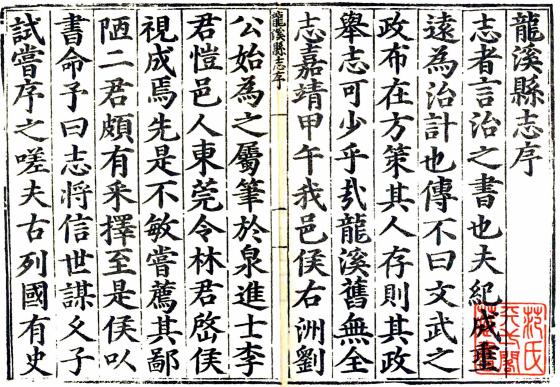 龍溪縣志序
志者言治之書也夫紀成畫
遠為治計也傳不曰文武之
政布在方策其人存則其政
舉志可少乎㢤龍溪舊無全
志嘉靖甲午我邑侯右洲劉
龍溪縣志序
公始為之屬筆於泉進士李
君愷邑人東莞令林君啓侯
視成焉先是不敏嘗薦其鄙
陋二君頗有采擇至是侯以
書命予曰志將信世謀子
試嘗序之嗟夫古列國有史
范氏
天一閣
藏書